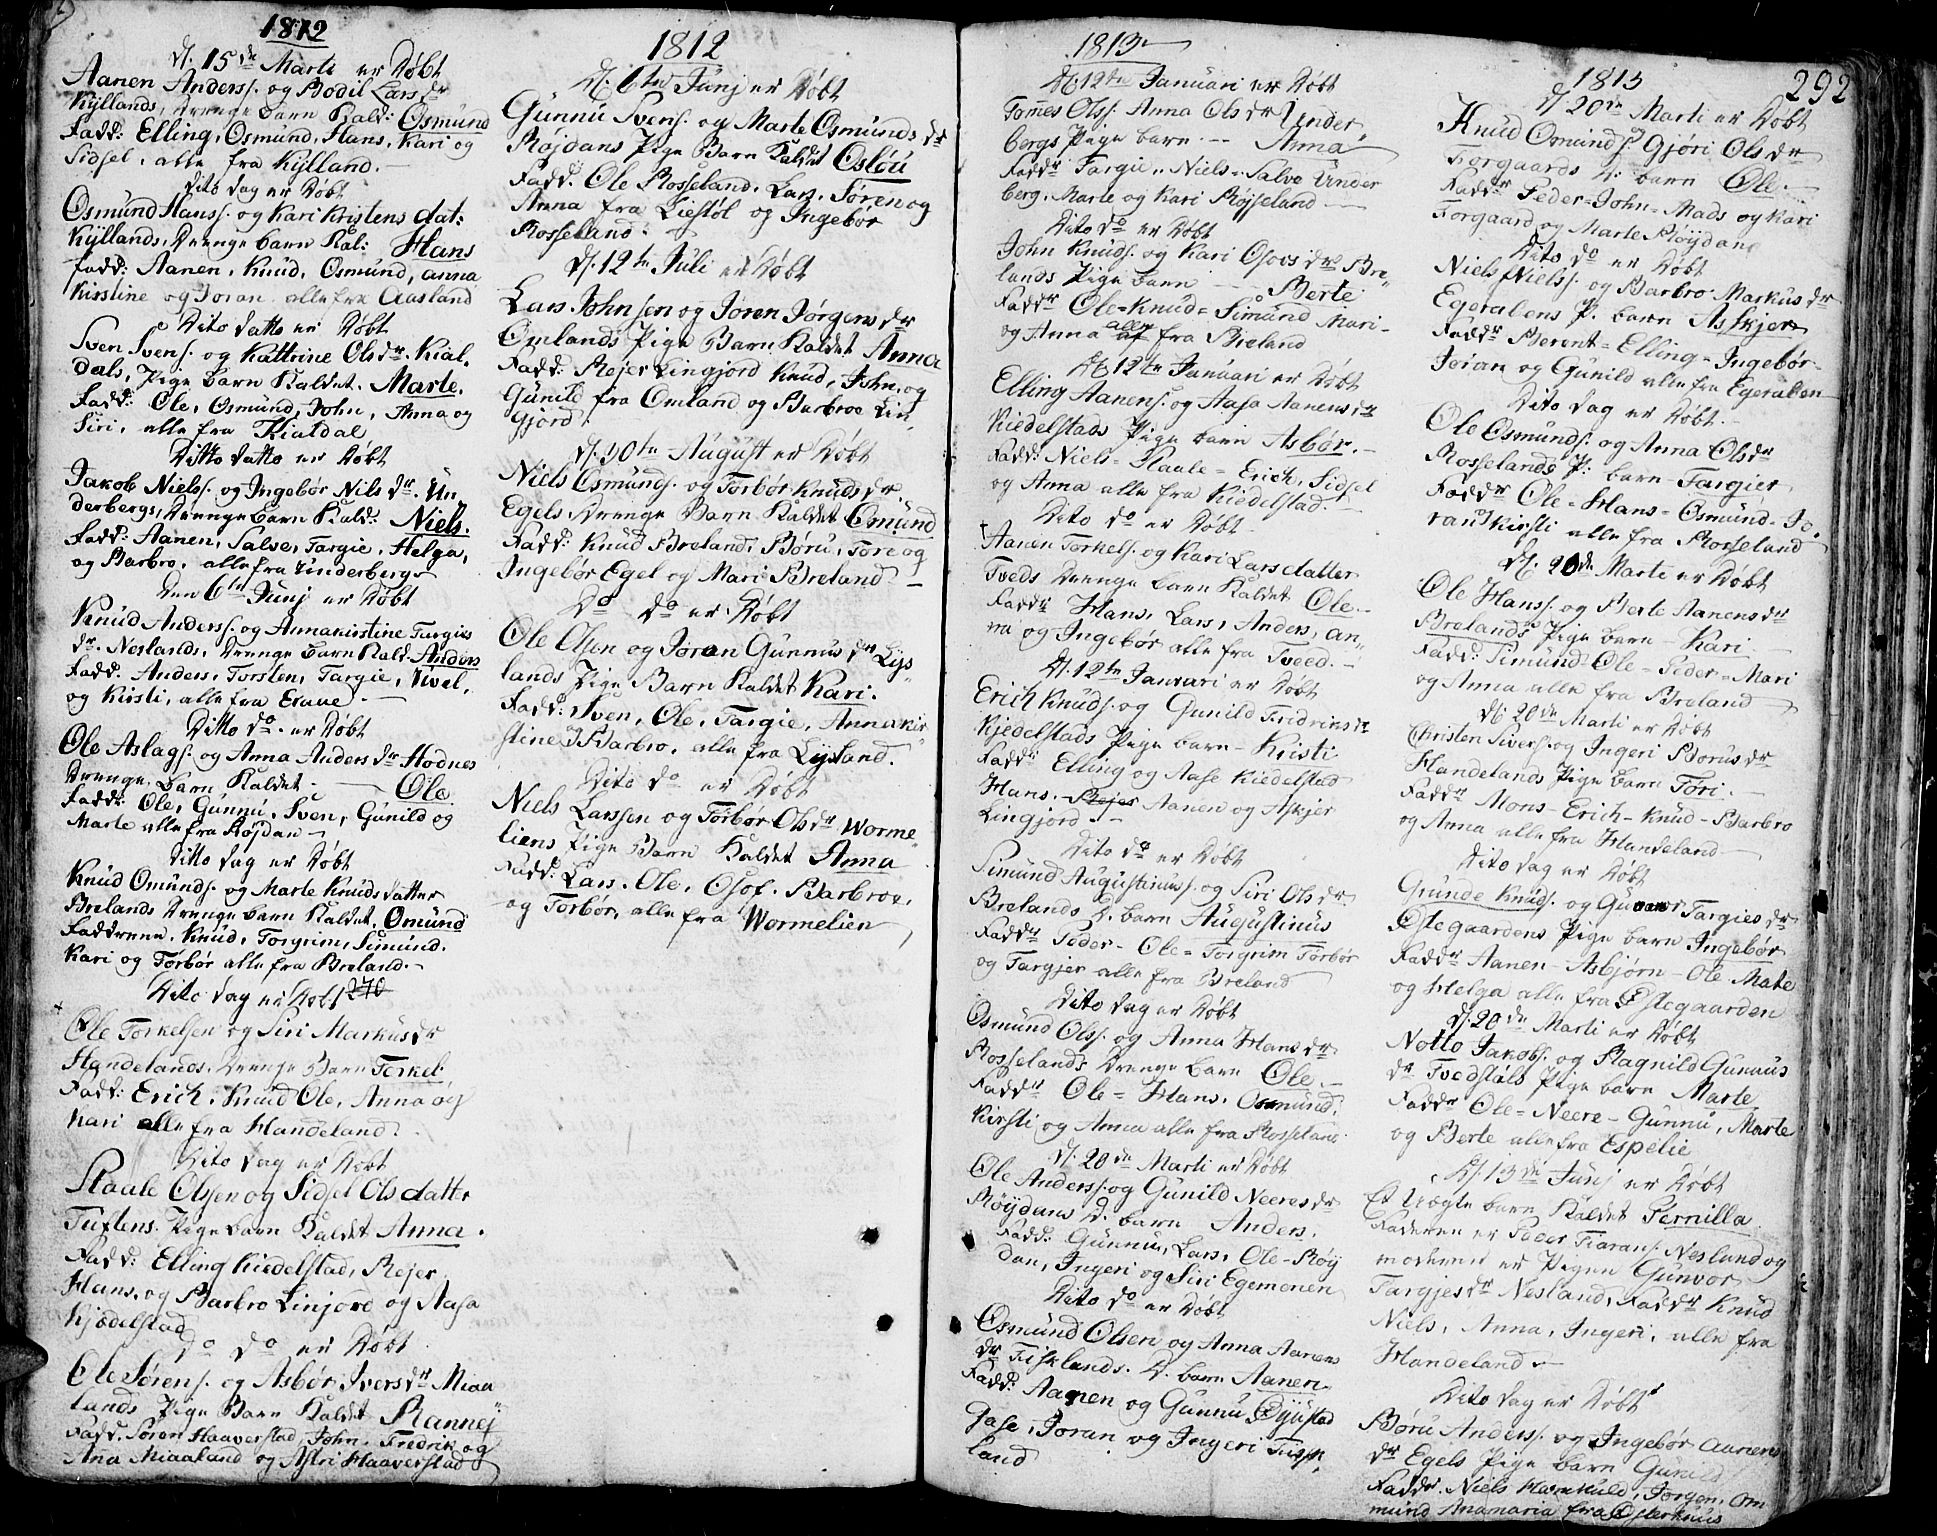 1812
d. 15de Marti er Døbt
Aanen Anderss. og Bodil Lars dr
Kyllands Drenge barn Kald: Osmund
Fadd: Elling, Osmund, Hans, Kari og
Sidsel, alle fra Kylland.
Dito dag er Døbt
Osmund Hanss. og Kari Kristens dat:
Kyllands, Drenge barn Kal: Hans
Fadd: Aanen, Knud, Osmund, anna
Kirstine og Joran alle fra Aasland
Dito datto er Døbt
Sven Svens. og Kattrine Ols dr. Kial-
dals, Pige barn Kaldet. Marte.
Fadd: Ole, Osmund, John, Anna og
Siri, alle fra Kialdal
Ditto datto er Døbt
Jakob Nielss. og Ingebør Nils dr. Un-
derbergs, Drenge barn Kald: Niels.
Fadd: Aanen, Salve, Targie, Helga,
og Barbro, alle fra Underberg
Den 6te Junj er Døbt
Knud Anderss. og Annakirstine Targies
dr. Neslands, Drenge barn Kald. Anders
Fadd: Anders, Torsten, Targie, Sivel,
og Kirsti, alle fra Eraae
Ditto do. er Døbt
Ole Aslags. og Anna Anders dr Hodnes
Drenge Barn Kaldet - Ole
Fadd: Ole, Gunnu, Sven, Gunild og
Marte alle fra Røjdan
Ditto dag er Døbt
Knud Omunds. og Marte Knuds datter
Brelands Drenge barn Kaldet. Omund
Faddrene. Knud, Torgrim, Simund.
Kari og Torbør alle fra Breland.
Dito dag er Døbt 270
Ole Torkelsen og Siri Markus dr
Handelands, Drenge Barn Terkel
Fadd: Erich, Knud Ole, Anna og
Kari alle fra Handeland.
Dito dag er Døbt
Raale Olssen og Sidsel Ols datter
Tuftens. Pige barn Kaldet Anna.
Fadd: Elling Kiedelstad, Rejer
Hans, og Barbro Linjord og Aasa
Kjødelstad
do do er Døbt
Ole Sørens. og Asbør Ivers dr Miaa
lands Pige Barn Kaldet Rannej
Fadd. Søren Haaverstad, John, Fredrik og
Ana Miaaland og Astri Haaverstad
1812
d. 6te Junj er Døbt
Gunnu Svens. og Marte Osmunds dr
Røjdans Pige Barn Kaldet Oslou
Fadd. Ole Rosseland. Lars. Søren og
Anna fra Liestøl og Ingebør
Rosseland.
d. 12te Juli er Døbt
Lars Johnsen og Joren Jørgens dr
Omlands Pige Barn Kaldet Anna
Fadd: Rejer Lingjord Knud, John, og
Gunild fra Omland og Barbroe Lin
gjord.
d. 30te August er Døbt
Niels Osmunds. og Torbør Knuds dr.
Egels Drenge Barn Kaldet Omund
Fadd: Knud Breland, Børu, Tore og
Ingebør Egel og Mari Breland
Do do er Døbt
Ole Olsen og Joran Gunnus dr Lys
lands Pige Barn Kaldet Kari.
Fadd: Sven, Ole, Targie, Annakir
stine, Barbro, alle fra Lysland.
Dito do er Døbt
Niels Larssen og Torbør Ols dr Worme
liens Pige Barn Kaldet Anna
Fadd: Lars. Ole, Osof. Barbroe,
og Torbør, alle fra Wormelien
1813
d. 12te Januari er Døbt
Tomes Olss. Anna Ols dr Under
bergs Pige barn -- Anna
Faddr Targie, Niels = Salve Under
berg, Marte og Kari Røjseland
Dito do er Døbt
John Knuds. og Kari Osovs dr Bre
lands Pige barn -- Berte
Faddr Ole = Knud = Simund Mari-
og Anna alle fra Breland
d. 12te Januari er Døbt
Elling Aanens. og Aasa Aanens dr
Kiedelstads Pige barn Asbør.
Fadd: Niels = Raale = Erich, Sidsel
og Anna alle fra Kiedelstad.
Dito do er Døbt
Aanen Torkels. og Kari Lars datter
Tveds Drenge barn Kaldet Ole
Faddr Hans, Lars, Anders, an-
na og Ingebør alle fra Tveed.
d. 12te Januari er Døbt
Erich Knuds. og Gunild Fridriks dr
Kjedelstads Pige barn - Kristi
Fadd: Elling og Aase Kiedelstad
Hans. Rejer Aanen og Askjer
Lingjord
Dito do er Døbt
Simund Augustinuss. og Siri Ols dr
Brelands D. barn Augustinus
Faddr Peder - Ole = Torgrim Torbør
og Targjer alle fra Breland
Dito dag er Døbt
Osmund Olss. og Anna Hans dr
Rosselands Drenge barn Ole.
Faddr Ole = Hans. Osmund.
Kirsti og Anna alle fra Rosseland
d. 20de Marti er Døbt
Ole Anderss. og Gunild Neeres dr
Røydans D. barn Anders,
Fadd: Gunnu, Lars, Ole Røy
dan, Ingeri og Siri Egemonen
Dito do er Døbt
Osmund Olsen og Anna Aanens
dr Fisklands. D. barn Aanen
Fadd: Aanen og Gunnu Øyustad
Jase, Joran og Ingeri Fusk
land
1813 292
d. 20de Marti er Døbt
Knud Osmunds. Gjøri Ols dr
Forgaards D. barn Ole.
Faddr Peder = John = Mads og Kari
Forgaard og Marte Røydane
Dito do er Døbt
Niels Nielss. og Barbro Markus dr
Egeralens P. barn Askjer
Faddr Berent = Elling = Ingebør
Joran og Gunild alle fra Egeralen
Dito dag er Døbt.
Ole Osmunds. og Anna Ols dr
Rosselands P. barn Targier
Faddr Ole = Hans = Osmund = Jo
ran, Kirsti alle fra Rosseland
d. 20de Marti er Døbt
Ole Hanss. og Berte Aanens dr
Brelands Pige barn - Kari
Fadd: Simund Ole = Peder = Mari
og Anna alle fra Breland
d. 20de Marti er Døbt
Christen Sivers. og Ingeri Borus dr
Handelands Pige barn Tori.
Faddr Mons - Erich - Knud - Barbro
og Anna alle fra Handeland
Dito dag er Døbt
Grunde Knuds. og Gunvor Targies dr
Østegaardens Pige barn Ingebør
Faddr Aanen - Asbjørn - Ole Mate
og Helga alle fra Østegaarden
d. 20de Marti er Døbt
Notto Jakobs. og Ragnild Gunnus
dr Tvedstøls Pige barn Marte
Faddr Ole = Neere - Gunnu, Marte
og Berte alle fra Espelie
d. 13de Junj er Døbt
Et Uægte barn Kaldet Pernilla
Faderen er Peder Tiarans. Nesland og
moderen er Pigen Gunvor
Targjes dr Nesland, Faddr Knud
Niels, Anna, Ingeri, alle fra
Handeland
Dito dag er Døbt
Børu Anderss. og Ingebør Aanens
dr Egels Pige barn Gunild
Faddr. Niels Hornkuld, Jorgen, Om
mund Anamaria fra Osterhuus